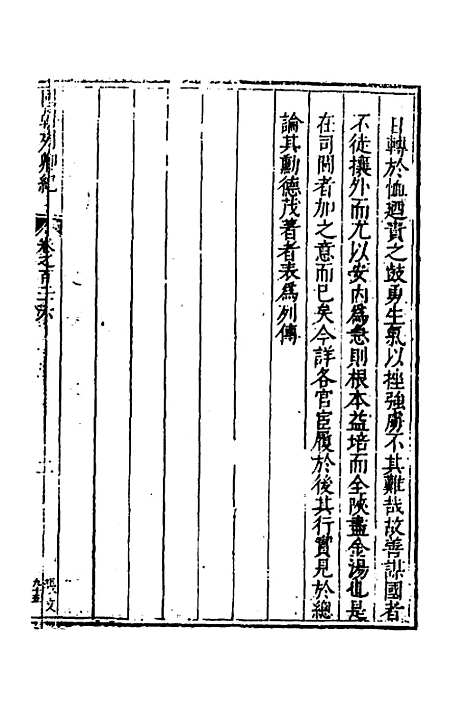 日轉於恤迺責之鼓勇生氣以挫強虜不其難哉故善謀國者
不徒攘外而尤以安内爲急則根本益培而全陝盡金湯也是
在司閫者加之意而已矣今詳各官宦履於後其行實見於總
論其勳德茂著者表爲列傳
國朝列卿紀
卷之百二十六
二